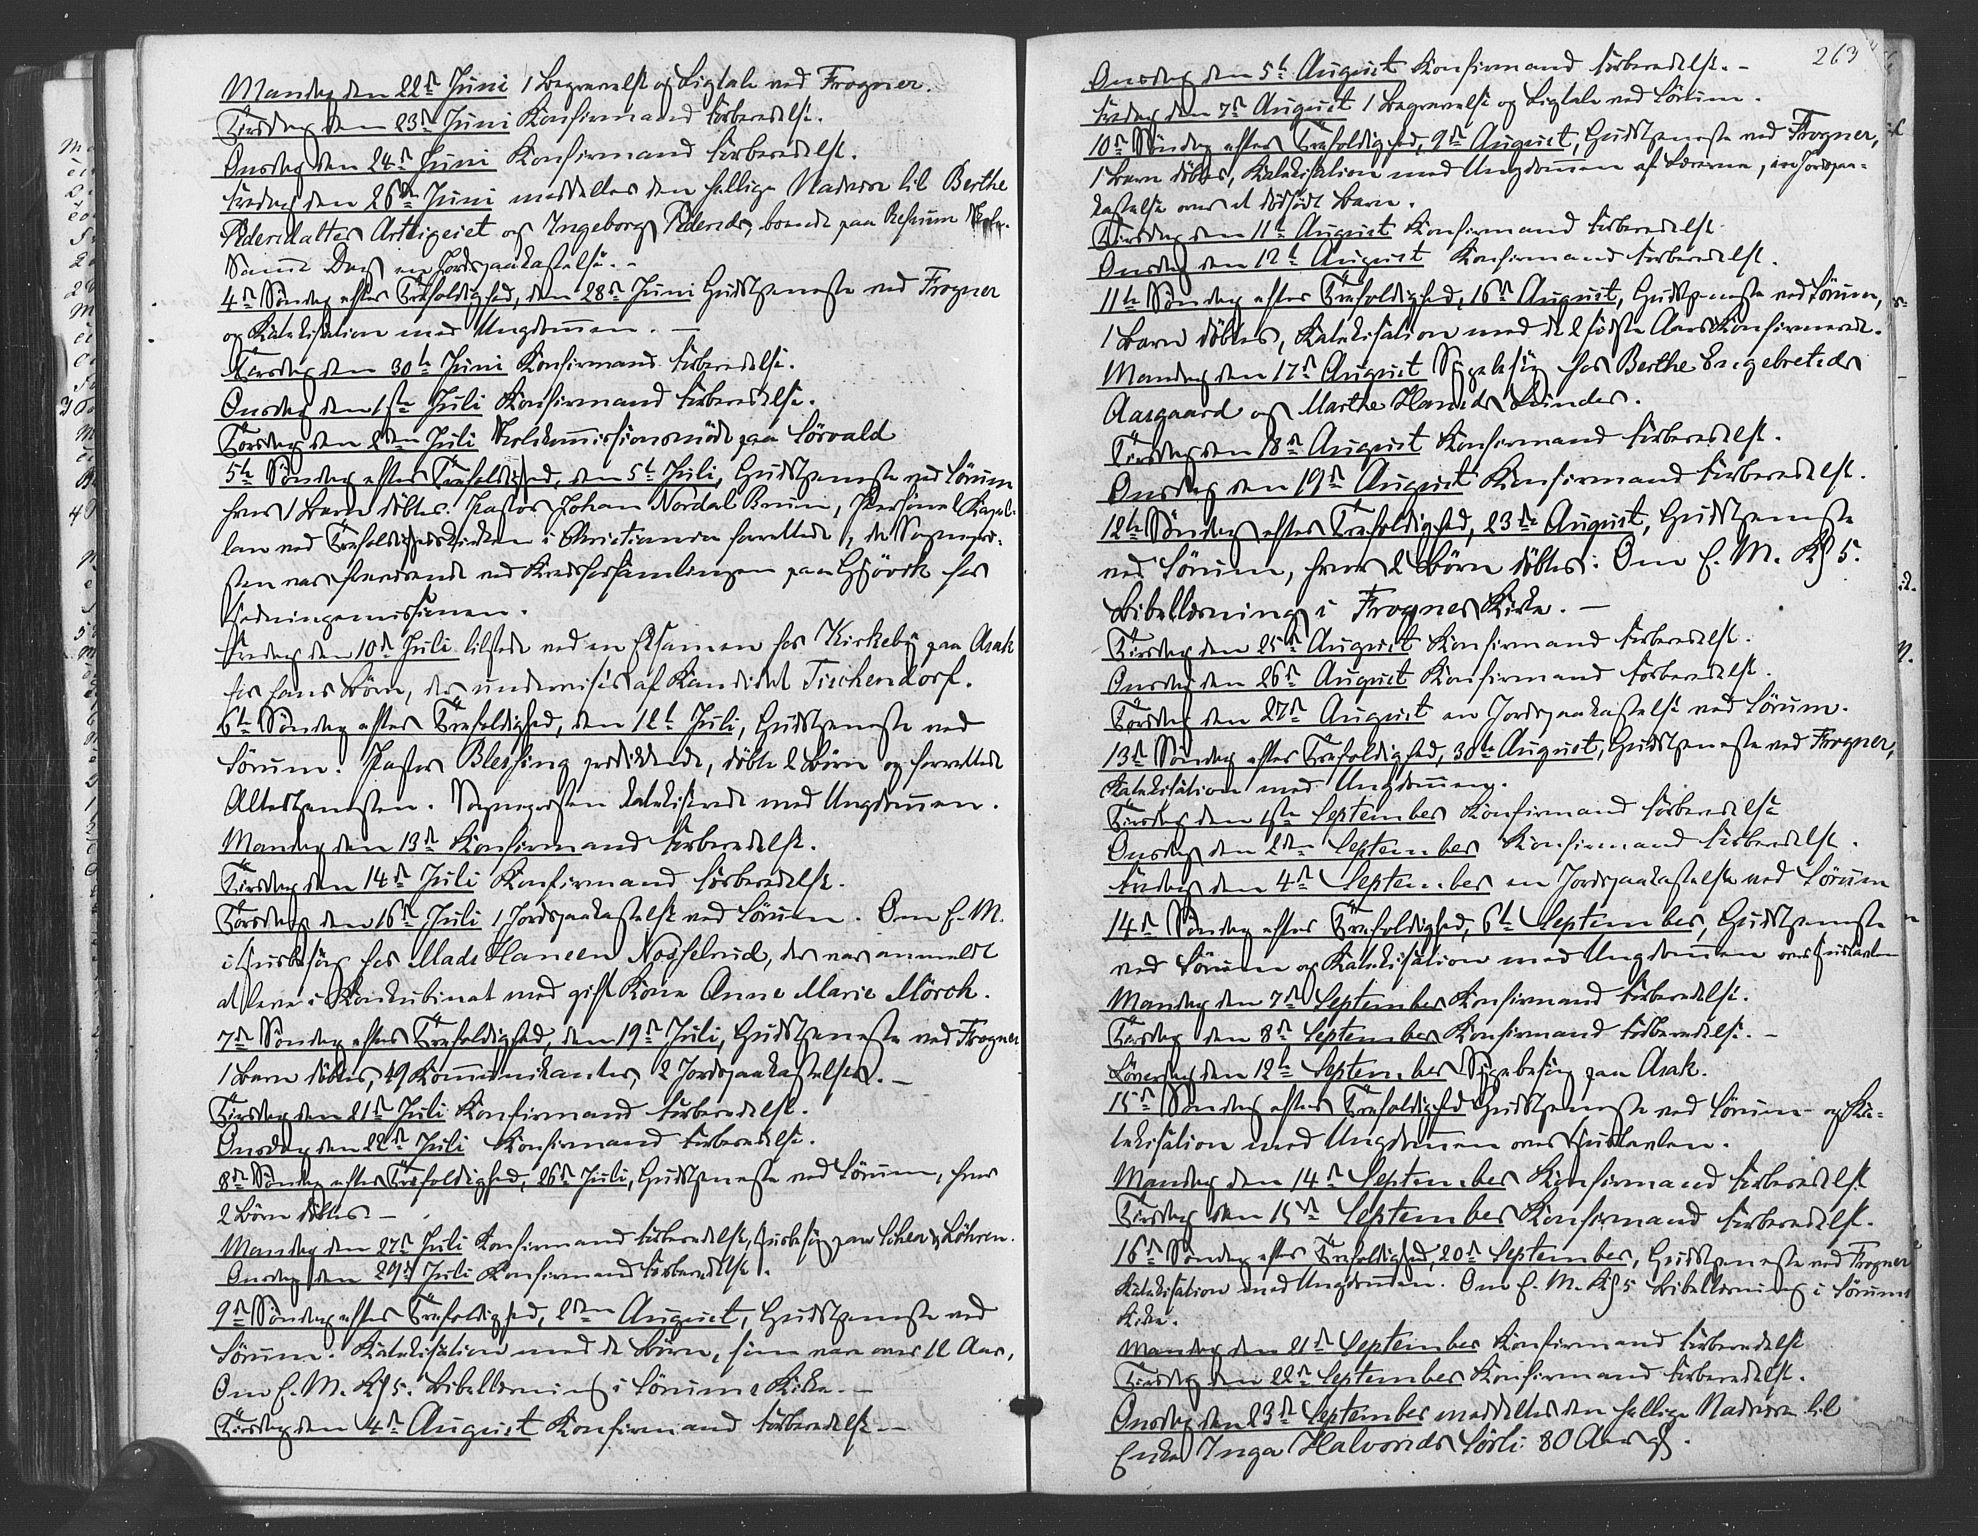 Mandag den 22de Juni 1 Begravelse og Ligtale ved Frogner.
Tirsdag den 23de Juni Konfirmand Forberedelse.
Onsdag den 24de Juni Konfirmand Forberedelse.
Fredag den 26de Juni meddeltes den hellige Nadvere til Berthe
Pedersdatter Arteigeiet og Ingeborg Pedersd. boende paa
Samme Dag en Jordspaakastelse. -
4de Søndag efter Trefoldighed, den 28de Juni Gudstjeneste ved Frogner
og Katekisation med Ungdommen. -
Tirsdag den 30te Juni Konfirmand Forberedelse.
Onsdag den 1ste Juli Konfirmand Forberedelse.
Torsdag den 2den Juli Skolekommissionsmøde paa Sörvald
5te Søndag efter Trefoldighed, den 5te Juli, Gudstjeneste ved Sörum
hvor 1 Barn döbtes. Pastor Johan Nordal Brun, Personel Kapel-
lan ved Trefoldighedskirken i Christiania forrettede, da Sognepre-
sten var fraværende ved Kredsforsamlingen paa Gjövik for
Hedningemissionen.
Fredag den 10de Juli tilstede ved en Eksamen hos Kirkeby paa Asak
for hans Börn, der undervises af Kandidat Tischendorf.
6te Søndag efter Trefoldighed, den 12te Juli, Gudstjeneste ved
Sörum. Pastor Blessing prædikede, döbte 2 Börn og forrettede
Altertjenesten. Sognepresten katekiserede med Ungdommen.
Mandag den 13de Konfirmand Forberedelse.
Tirsdag den 14de Juli Konfirmand Forberedelse.
Torsdag den 16de Juli 1 Jordspaakastelse ved Sörum. Om E. M.
i Husbesög hos Mads Hansen Nosselrud, der var anmeldt
at leve i Konkubinat med gift Kone Anne Marie Mörch.
7de Søndag efter Trefoldighed, den 19de Juli, Gudstjeneste ved Frogner
1 Barn döbtes, 49 Kommunikanter, 2 Jordspaakastelser. -
Tirsdag den 21de Juli Konfirmand Forberedelse.
Onsdag den 22de Juli Konfirmand Forberedelse.
8de Søndag efter Trefoldighed, 26de Juli, Gudstjeneste ved Sörum, hvor
2 Börn döbtes. -
Mandag den 27de Juli Konfirmand Forberedelse, Husbesög paa
Onsdag den 29de Juli Konfirmand Forberedelse.
9de Søndag efter Trefoldighed, 2den August, Gudstjeneste ved
Sörum. Katekisation med de Börn, som var over 12 Aar,
Om E. M. Kl 5. Bibellæsning i Sörums Kirke. -
Tirsdag den 4de August Konfirmand Forberedelse -
263
Onsdag den 5te August Konfirmand Forberedelse. -
Fredag den 7de August 1 Begravelse og Ligtale ved Sörum.
10de Søndag efter Trefoldighed, 9de August, Gudstjeneste ved Frogner,
1 Barn döbtes, Katekisation med Ungdommen af Lærerne, en Jordspaa-
kastelse over et dödfödt Barn.
Tirsdag den 11te August Konfirmand Forberedelse
Onsdag den 12te August Konfirmand Forberedelse.
11te Søndag efter Trefoldighed, 16de August, Gudstjeneste ved Sörum,
1 Barn döbtes, Katekisation med de 2 sidste Aars Konfirmerede.
Mandag den 17de August Sygebesög hos Berthe Engebretsd.
Aasgaard og Marthe Hansd.
Tirsdag den 18de August Konfirmand Forberedelse.
Onsdag den 19de August Konfirmand Forberedelse.
12te Søndag efter Trefoldighed, 23de August, Gudstjeneste
ved Sörum, hvor 2 Börn döbtes. Om E. M. Kl 5.
Bibellæsning i Frogner Kirke. -
Tirsdag den 25de August Konfirmand Forberedelse.
Onsdag den 26de August Konfirmand Forberedelse.
Torsdag den 27de August en Jordspaakastelse ved Sörum.
13de Søndag efter Trefoldighed, 30te August, Gudstjeneste ved Frogner,
Katekisation med Ungdommen.
Tirsdag den 1ste September Konfirmand Forberedelse
Onsdag den 2den September Konfirmand Forberedelse.
Fredag den 4de September en Jordspaakastelse ved Sörum
14de Søndag efter Trefoldighed, 6te September, Gudstjeneste
ved Sörum og Katekisation med Ungdommen over Hustavlen
Mandag den 7de September Konfirmand Forberedelse.
Tirsdag den 8de September Konfirmand Forberedelse. -
Löverdag den 12te September Sygebesög paa Asak.
15de Søndag efter Trefoldighed Gudstjeneste ved Sörum - og Ka-
tekisation med Ungdommen over Hustavlen.
Mandag den 14de September Konfirmand Forberedelse
Tirsdag den 15de September Konfirmand Forberedelse.
16de Søndag efter Trefoldighed, 20de September, Gudstjeneste ved Frogner
Katekisation med Ungdommen. Om E. M. Kl 5 Bibellæsning i Sörums
Kirke.
Mandag den 21de September Konfirmand Forberedelse
Tirsdag den 22de September Konfirmand Forberedelse.
Onsdag den 23de September meddeltes den hellige Nadvere til
Enke Inga Halvorsd. Sörli 80 Aar gl.